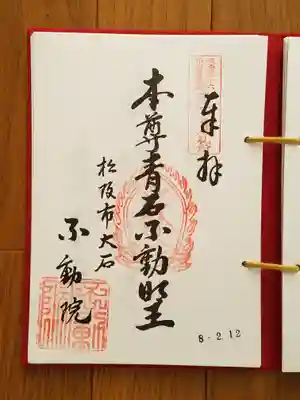 奉拝
本尊青石不動明王
松阪市大石
不動院
8.2.12